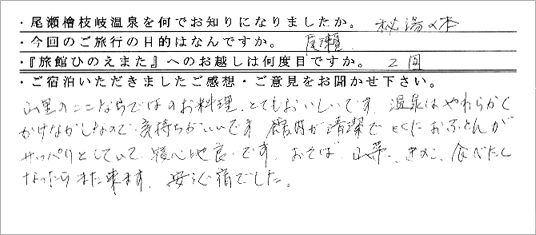 ・尾瀬檜枝岐温泉を何でお知りになりましたか。 秘湯の本
・今回のご旅行の目的はなんですか。 尾瀬
・『旅館ひのえまた』へのお越しは何度目ですか。 2回
・ご宿泊いただきましたご感想・ご意見をお聞かせ下さい。
山里のここならではのお料理、とてもおいしいです 温泉はやわらかく
かけながしなので気持ちがいいです 館内が清潔で とくにおふとんが
サッパリとしていて 寝心地良いです。おそば、山菜、きのこ、食べたく
なったらまた来ます。安らぐ宿でした。